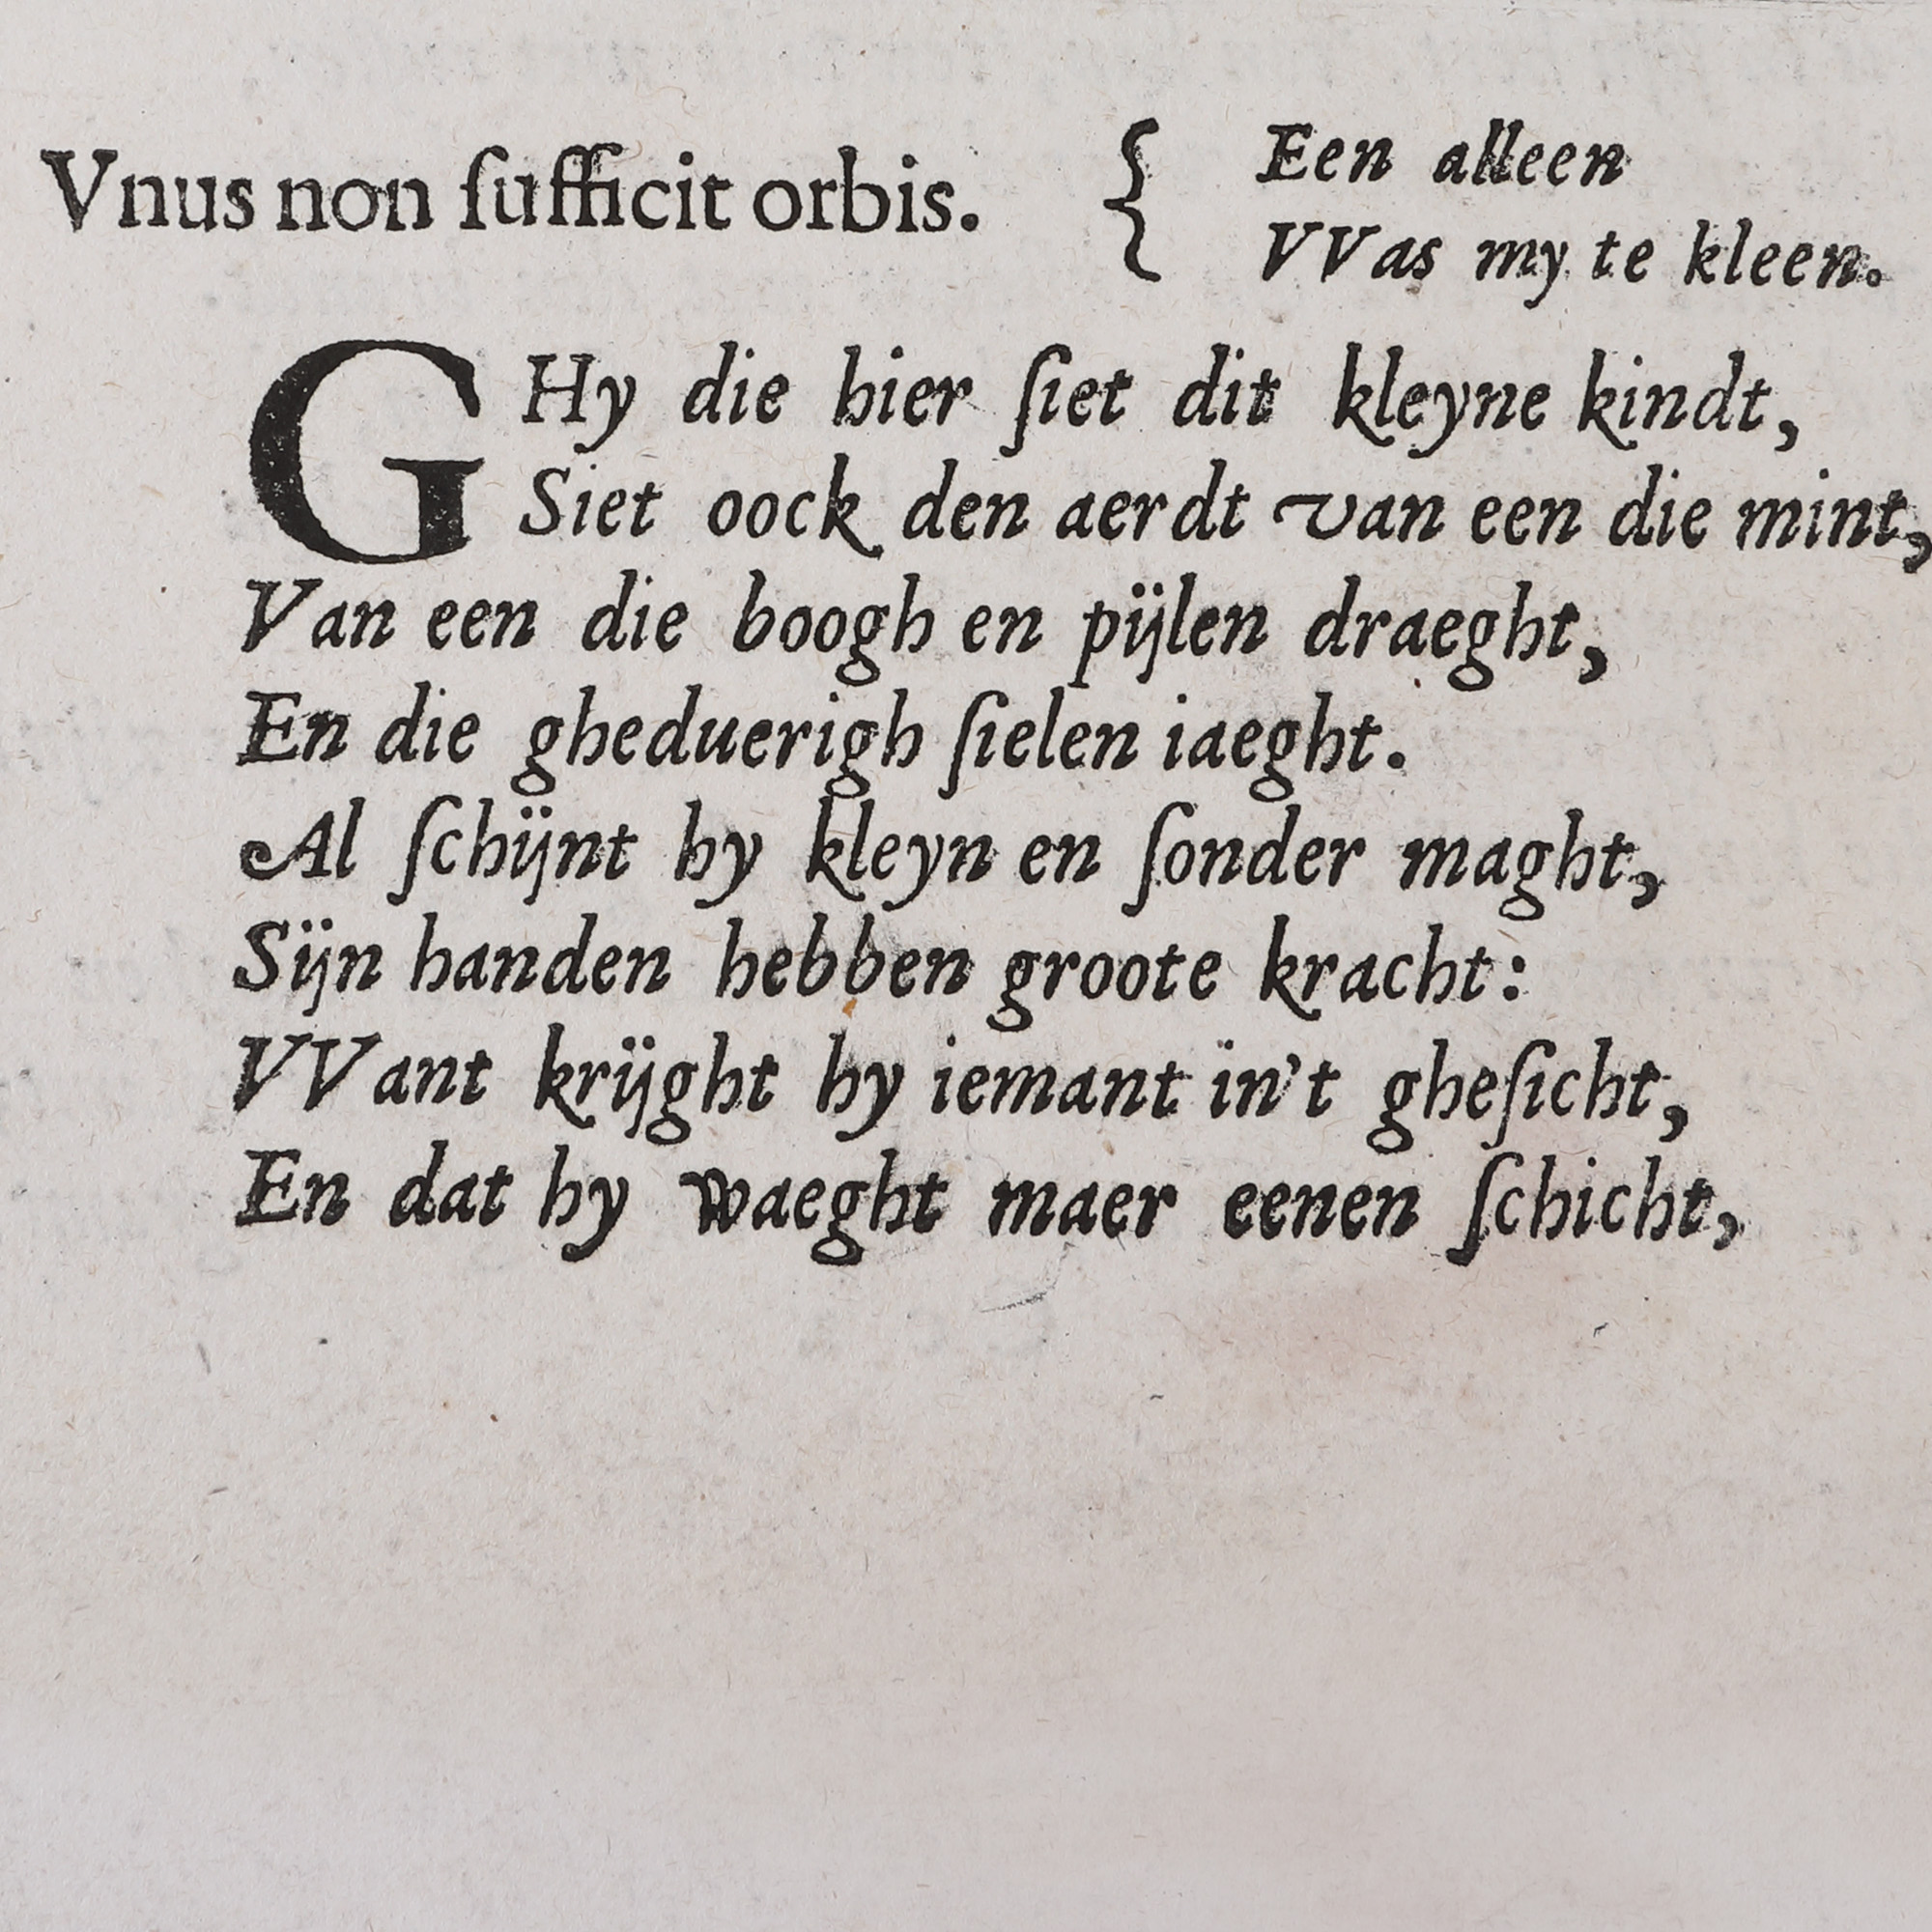 Vnus non ſufficit orbis. { Een alleen
VVas my te kleen.
GHy die hier ſiet dit kleyne kindt,
Siet oock den aerdt van een die mint,
Van een die boogh en pijlen draeght,
En die gheduerigh ſielen iaeght.
Al ſchijnt hy kleyn en ſonder maght,
Sijn handen hebben groote kracht:
VVant krijght hy iemant in't gheſicht,
En dat hy waeght maer eenen ſchicht,